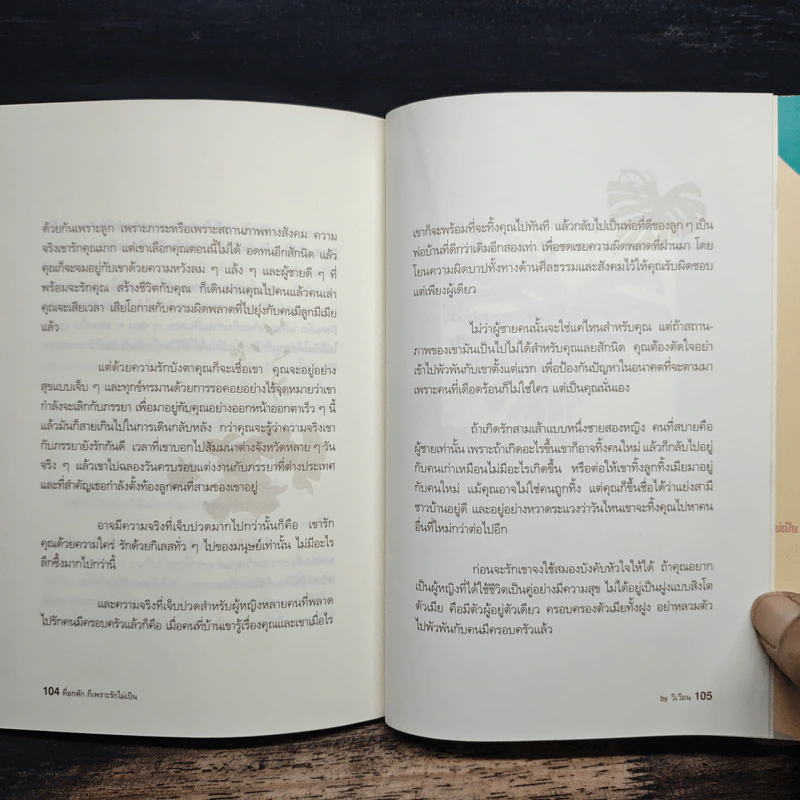 ด้วยกันเพราะลูก เพราะภาระหรือเพราะสถานภาพทางสังคม ความ
จริงเขารักคุณมาก แต่เขาเลือกคุณตอนนี้ไม่ได้ อดทนอีกสักนิด แล้ว
คุณก็จะจมอยู่กับเขาด้วยความหวังลม ๆ แล้ง ๆ และผู้ชายดี ๆ ที่
พร้อมจะรักคุณ สร้างชีวิตกับคุณ ก็เดินผ่านคุณไปคนแล้วคนเล่า
คุณจะเสียเวลา เสียโอกาสกับความผิดพลาดที่ไปยุ่งกับคนมีลูกมีเมีย
แล้ว
แต่ด้วยความรักบังตาคุณก็จะเชื่อเขา คุณจะอยู่อย่าง
สุขแบบเจ็บ ๆ และทุกข์ทรมานด้วยการรอคอยอย่างไร้จุดหมายว่าเขา
กำลังจะเลิกกับภรรยา เพื่อมาอยู่กับคุณอย่างออกหน้าออกตาเร็ว ๆ นี้
แล้วมันก็สายเกินไปในการเดินกลับหลัง กว่าคุณจะรู้ว่าความจริงเขา
กับภรรยายังรักกันดี เวลาที่เขาบอกไปสัมมนาต่างจังหวัดหลาย ๆ วัน
จริง ๆ แล้วเขาไปฉลองวันครบรอบแต่งงานกับภรรยาที่ต่างประเทศ
และที่สำคัญเธอกำลังตั้งท้องลูกคนที่สามของเขาอยู่
อาจมีความจริงที่เจ็บปวดมากไปกว่านั้นก็คือ เขารัก
คุณด้วยความใคร่ รักด้วยกิเลสทั่ว ๆ ไปของมนุษย์เท่านั้น ไม่มีอะไร
ลึกซึ้งมากไปกว่านี้
และความจริงที่เจ็บปวดสำหรับผู้หญิงหลายคนที่พลาด
ไปรักคนมีครอบครัวแล้วก็คือ เมื่อคนที่บ้านเขารู้เรื่องคุณและเขาเมื่อไร
104 ที่อกหัก ก็เพราะรักไม่เป็น
เขาก็จะพร้อมที่จะทิ้งคุณไปทันที แล้วกลับไปเป็นพ่อที่ดีของลูก ๆ เป็น
พ่อบ้านที่ดีกว่าเดิมอีกสองเท่า เพื่อชดเชยความผิดพลาดที่ผ่านมา โดย
โยนความผิดบาปทั้งทางด้านศีลธรรมและสังคมไว้ให้คุณรับผิดชอบ
แต่เพียงผู้เดียว
ไม่ว่าผู้ชายคนนั้นจะใช่แค่ไหนสำหรับคุณ แต่ถ้าสถาน-
ภาพของเขามันเป็นไปไม่ได้สำหรับคุณเลยสักนิด คุณต้องตัดใจอย่า
เข้าไปพัวพันกับเขาตั้งแต่แรก เพื่อป้องกันปัญหาในอนาคตที่จะตามมา
เพราะคนที่เดือดร้อนก็ไม่ใช่ใคร แต่เป็นคุณนั่นเอง
ถ้าเกิดรักสามเส้าแบบหนึ่งชายสองหญิง คนที่สบายคือ
ผู้ชายเท่านั้น เพราะถ้าเกิดอะไรขึ้นเขาก็อาจทิ้งคนใหม่ แล้วก็กลับไปอยู่
กับคนเก่าเหมือนไม่มีอะไรเกิดขึ้น หรือต่อให้เขาทิ้งลูกทิ้งเมียมาอยู่
กับคนใหม่ แม้คุณอาจไม่ใช่คนถูกทิ้ง แต่คุณก็ขึ้นชื่อได้ว่าแย่งสามี
ชาวบ้านอยู่ดี และอยู่อย่างหวาดระแวงว่าวันไหนเขาจะทิ้งคุณไปหาคน
อื่นที่ใหม่กว่าต่อไปอีก
ก่อนจะรักเขาจงใช้สมองบังคับหัวใจให้ได้ ถ้าคุณอยาก
เป็นผู้หญิงที่ได้ใช้ชีวิตเป็นคู่อย่างมีความสุข ไม่ได้อยู่เป็นฝูงแบบสิงโต
ตัวเมีย คือมีตัวผู้อยู่ตัวเดียว ครอบครองตัวเมียทั้งฝูง อย่าหลวมตัว
ไปพัวพันกับคนมีครอบครัวแล้ว
by วิเวียน 105